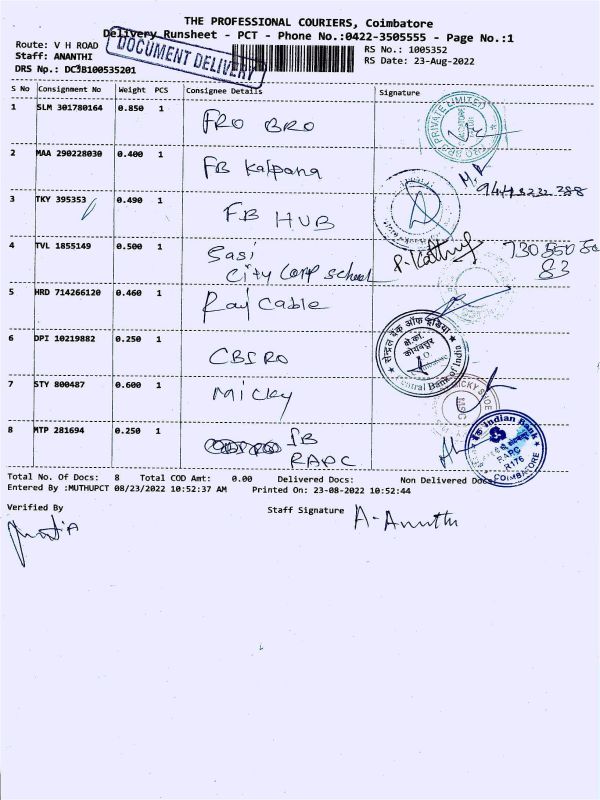 THE PROFESSIONAL COURIERS, Coimbatore
Delivery Runsheet - PCT - Phone No.:0422-3505555 - Page No.:1
Route: V H ROAD
RS No.: 1005352
Staff: ANANTHI
RS Date: 23-Aug-2022
DRS No.: DC3B100535201
DOCUMENT DELIVERY
S No Consignment No Weight PCS Consignee Details Signature
1 SLM 301780164 0.850 1 FRO BRO
PRIVATE LIMITED
2 MAA 290228030 0.400 1 FB Kalpana
3 TKY 395353 0.490 1 FB HUB
4 TVL 1855149 0.500 1 Sasi
City Corp school
5 HRD 714266120 0.460 1 Raj Cable
6 DPI 10219882 0.250 1 CBI RO
सेन्ट्रल बैंक ऑफ इंडिया
क्षे.का.
कोयंबत्तूर
R.O.
Coimbatore
Central Bank of India
7 STY 800487 0.600 1 Micky
MICKY SHOE
8 MTP 281694 0.250 1 IB
RAPC
Indian Bank
RAPC
R176
COIMBATORE
Total No. Of Docs: 8 Total COD Amt: 0.00 Delivered Docs: Non Delivered Docs
Entered By :MUTHUPCT 08/23/2022 10:52:37 AM Printed On: 23-08-2022 10:52:44
Verified By
Staff Signature A-Ananthi